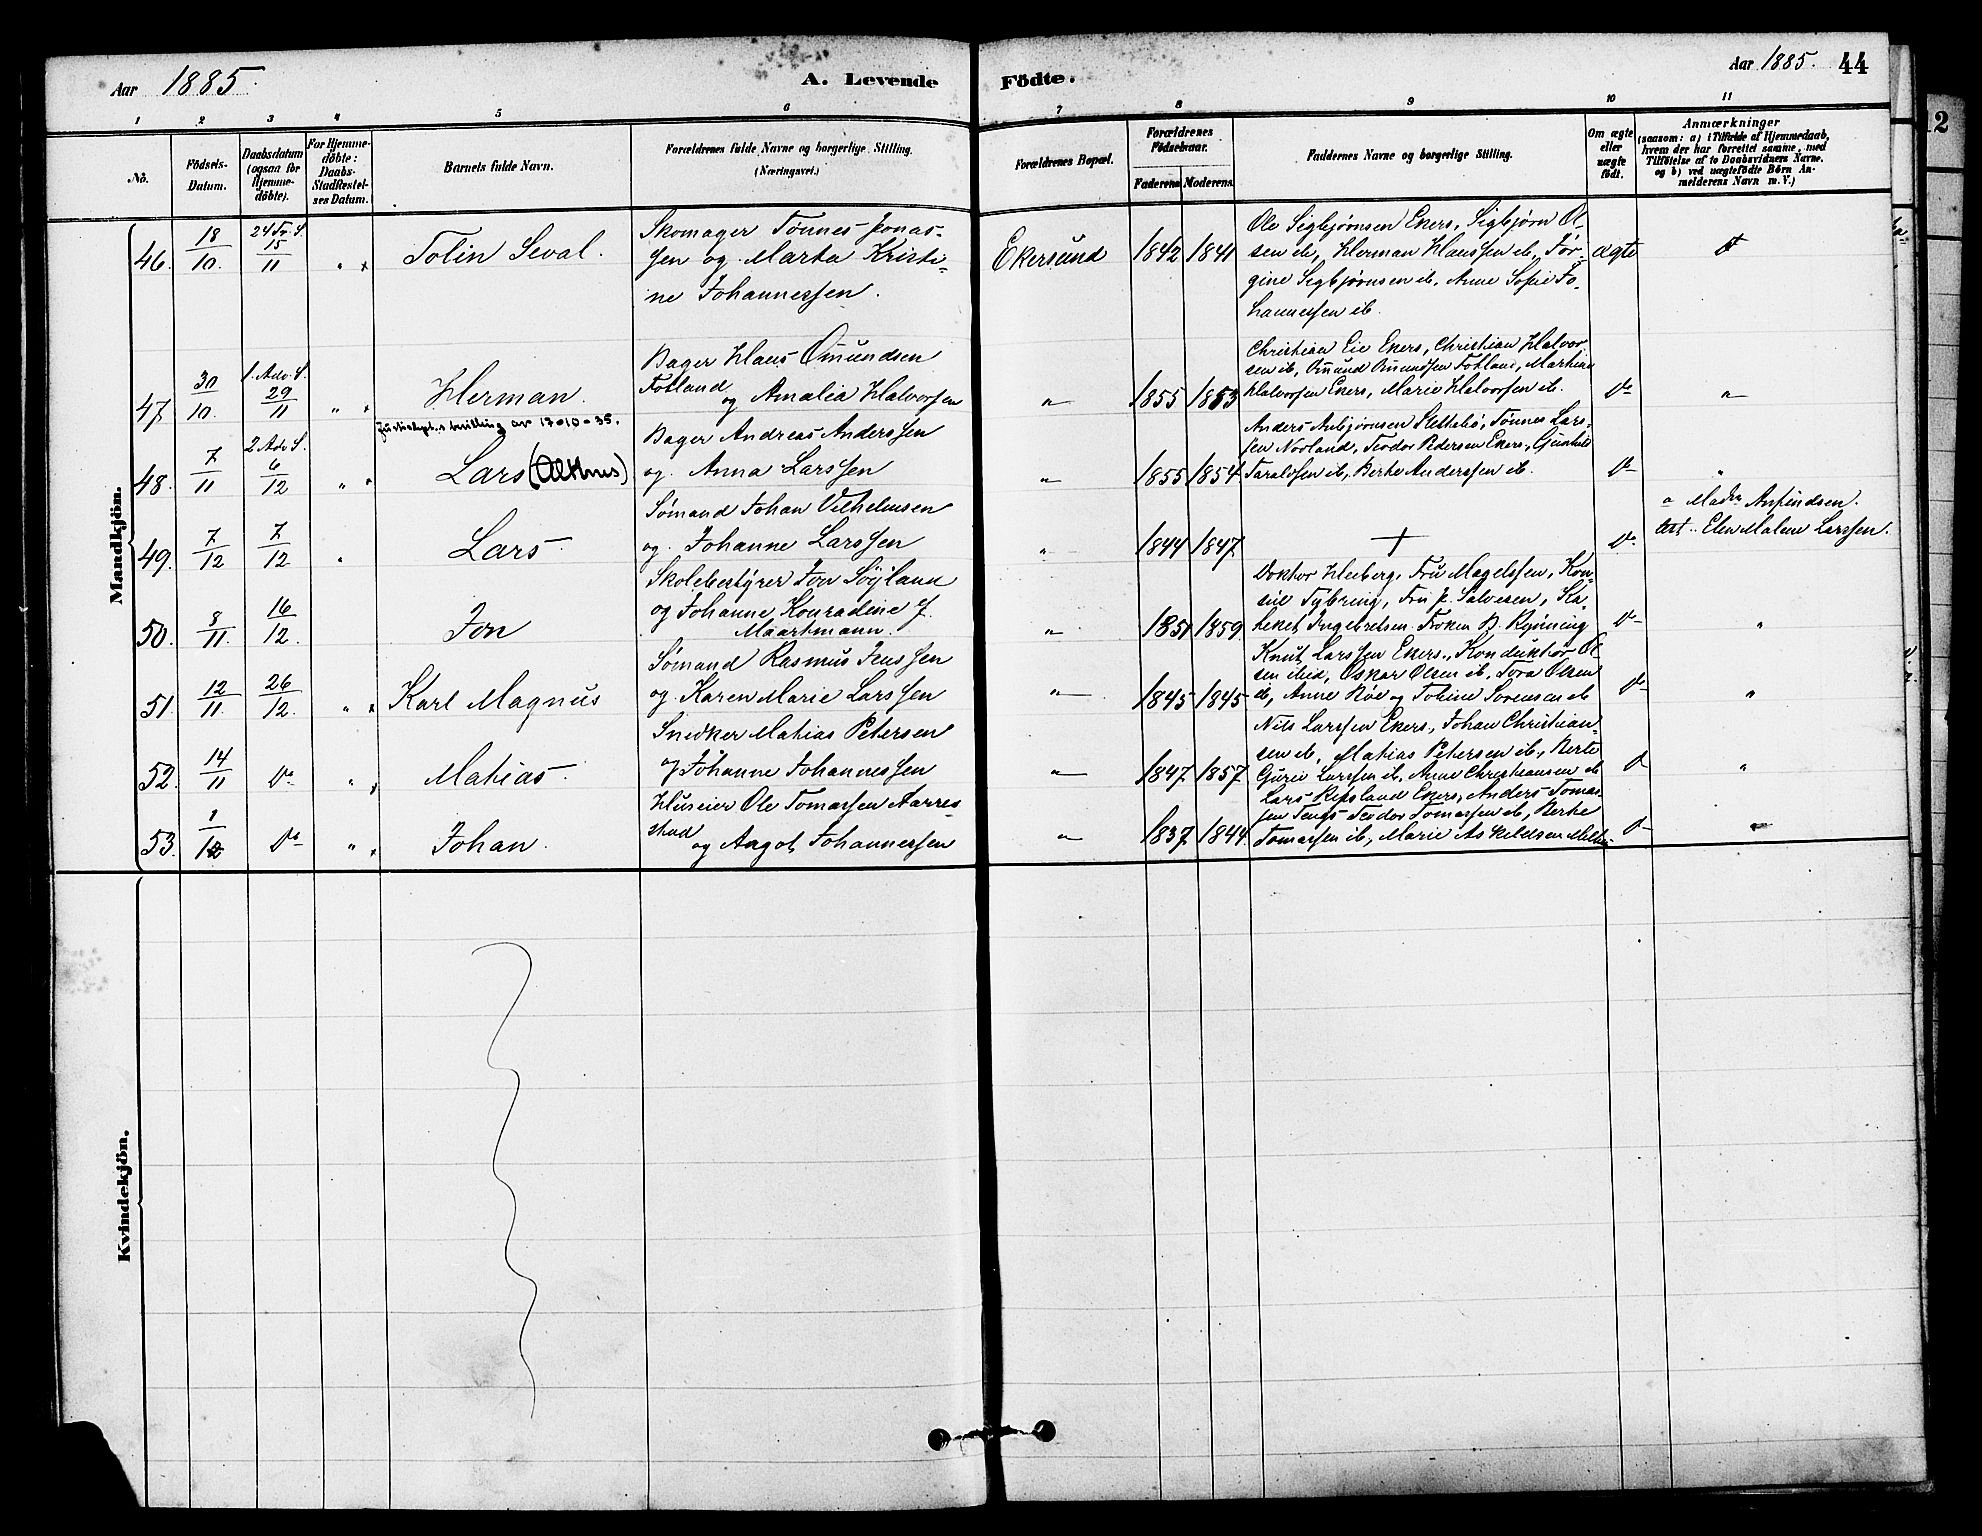 Aar 1885.
A. Levende Födte.
Aar 1885. 44
1 2 3 4 5 6 7 8 9 10 11
No.
Födsels-
Datum.
Daabsdatum
(ogsaa for
Hjemme-
døbte).
For Hjemme-
døbte:
Daabs-
Stadfæstel-
ses Datum.
Barnets fulde Navn.
Forældrenes fulde Navne og borgerlige Stilling.
(Næringsvei.)
Forældrenes Bopæl.
Forældrenes
Födselsaar.
Faderens Moderens
Faddernes Navne og borgerlige Stilling.
Om ægte
eller
uægte
født.
Anmærkninger
(saasom: a) i Tilfælde af Hjemmedaab,
hvem der har forrettet samme, med
Tilføielse af to Daabsvidners Navne.
og b) ved uægtefødte Børn An-
melderens Navn m. V.)
Mandkjön.
46. 18/10. 24 Tr. S. 15/11 " Tolin Seval.
Skomager Tønnes Jonas-
sen og Marta Kristi-
ne Johannessen.
Ekersund 1842 1841
Ole Sigbjørnsen Ekers., Sigbjørn Ol-
sen ib., Herman Hanssen ib., Tor-
gine Sigbjørnsen ib., Anne Sofie Jo-
hannessen ib.
ægte
47. 30/10. 1. Adv. S. 29/11 " Herman.
Bager Claus Omundsen
Fotland og Amalia Halvorsen
" 1855 1853
Christian Eie Ekers., Christian Halvor
sen ib., Omund Omundsen Fotland, Martine
Halvorsen Ekers., Marie Halvorsen ib.
do "
Justisdept.s bevilling av 17-10-35.
48. 7/11 2 Adv. S. 6/12 " Lars (Althus)
Bager Andreas Anderssen
og Anna Larssen
" 1855 1854
Anders Asbjørnsen Slettebø, Tønnes Lars-
sen Norland, Teodor Pedersen Ekers., Gunhild
Taraldsen ib., Berte Anderssen ib.
do "
49. 7/12 7/12 " Lars.
Sømand Johan Vilhelmsen
og Johanne Larssen
" 1844 1847 + do
a Madm Anfindsen.
Elen Malene Larssen.
50. 8/11. 16/12. Jon
Skolebestyrer Jon Söyland
og Johanne Konradine f.
Maartmann.
" 1851 1859
Doktor Kleeberg, Fru Magelssen, Kon-
sul Tybring, Fru P. Salvesen, Ka-
teket Ingebretsen. Frøken B. Rynning
do "
51. 12/11. 26/12. " Karl Magnus
Sømand Rasmus Jenssen
og Karen Marie Larssen
" 1845 1845
Knut Larssen Ekers., Konduktør Ol-
sen ib., Oskar Olsen ib., Tora Olsen
ib., Anne Røe og Tobine Sørensen ib
do "
52. 14/11 do " Mathias.
Snedker Matias Petersen
og Johanne Johannessen
" 1847 1857
Nils Larssen Ekers., Johan Christian-
sen ib., Mathias Petersen ib., Berte
Gurie Larssen ib., Anne Christiansen ib
do "
53. 1/12 do " Johan.
Huseier Ole Tomassen Aarre-
stad og Aagot Johannessen
" 1837 1844
Lars Ripsland Ekers., Anders Tomas-
sen Tengs, Teodor Tomassen ib., Berte
Tomassen ib., Marie Askildsen
do "
Kvindekjön.
12